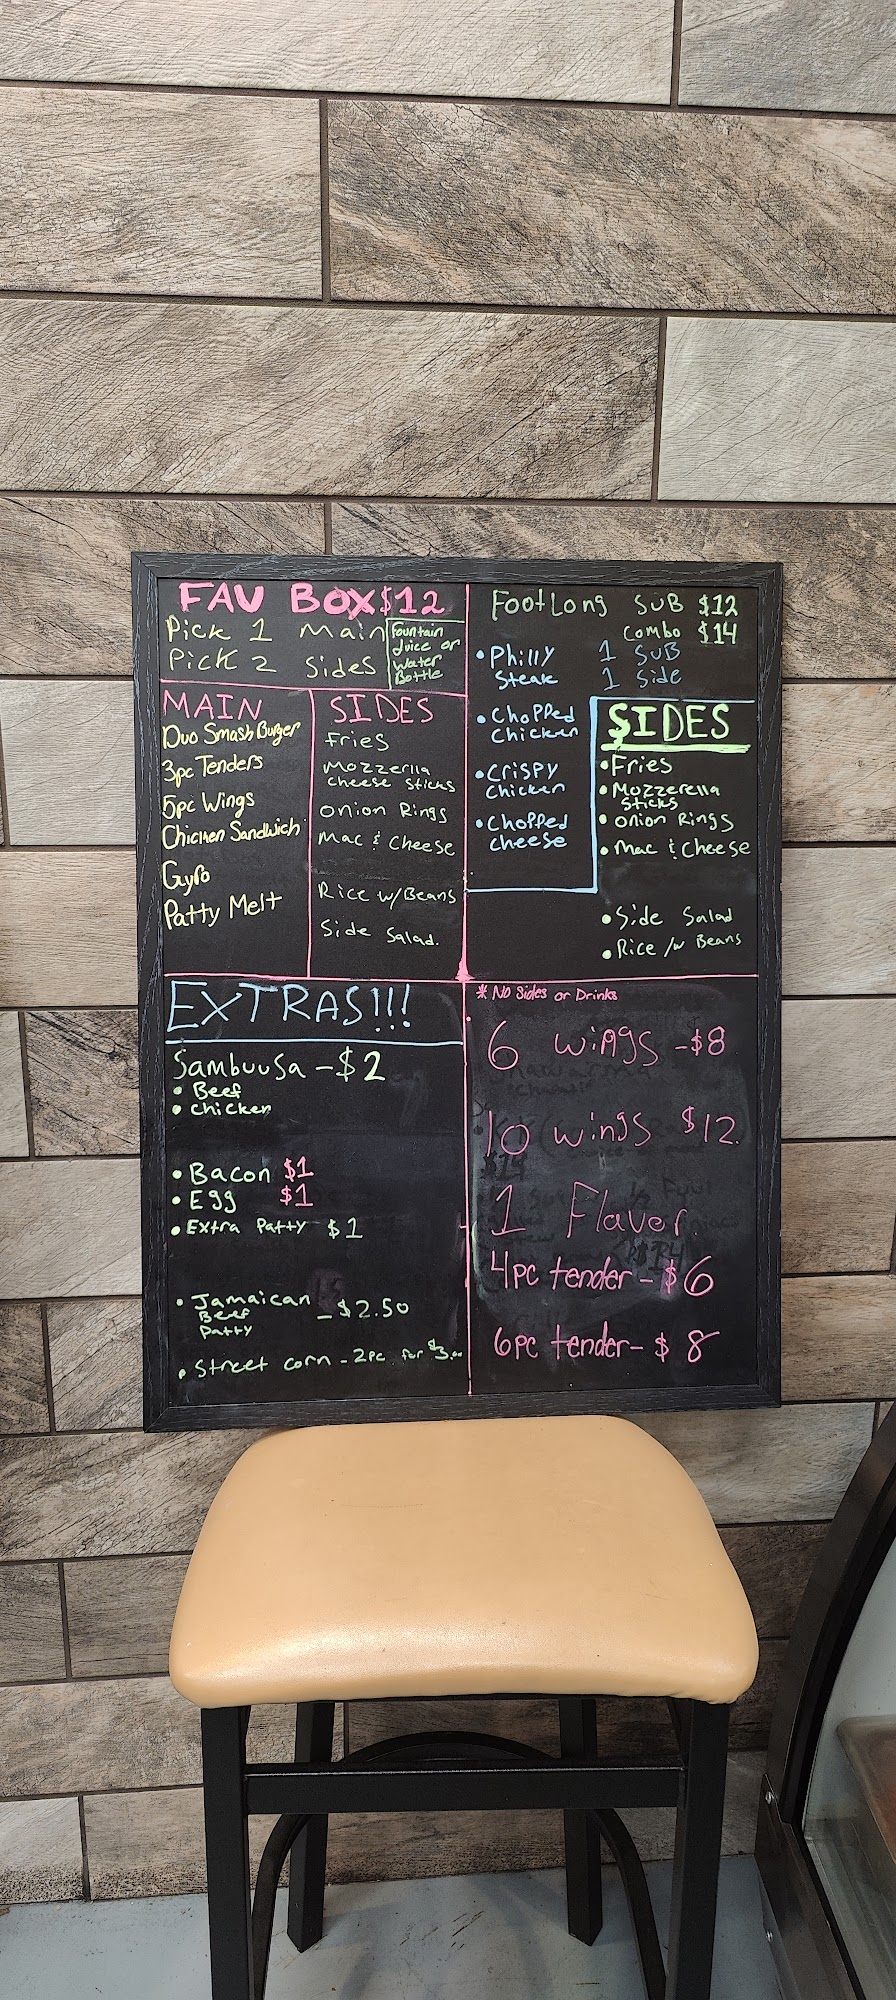 FAV BOX $12
Pick 1 Main
Pick 2 Sides
Fountain
Juice or
Water
Bottle
MAIN
Duo Smash Burger
3pc Tenders
5pc Wings
Chicken Sandwich
Gyro
Patty Melt
SIDES
Fries
Mozzerlla
cheese sticks
onion Rings
Mac & Cheese
Rice w/Beans
Side Salad.
FootLong SUB $12
Combo $14
• Philly
Steak
1 SUB
1 Side
• Chopped
Chicken
• Crispy
Chicken
• Chopped
cheese
SIDES
• Fries
• Mozzerella
sticks
• onion Rings
• Mac & Cheese
• Side Salad
• Rice /w Beans
EXTRAS!!!
Sambuusa - $2
• Beef
• Chicken
• Bacon $1
• Egg $1
• Extra Patty $1
• Jamaican
Beef
Patty
- $2.50
• Street corn - 2pc for $3.00
* No Sides or Drinks
6 wings - $8
10 wings $12.
1 Flavor.
4pc tender - $6
6pc tender - $8